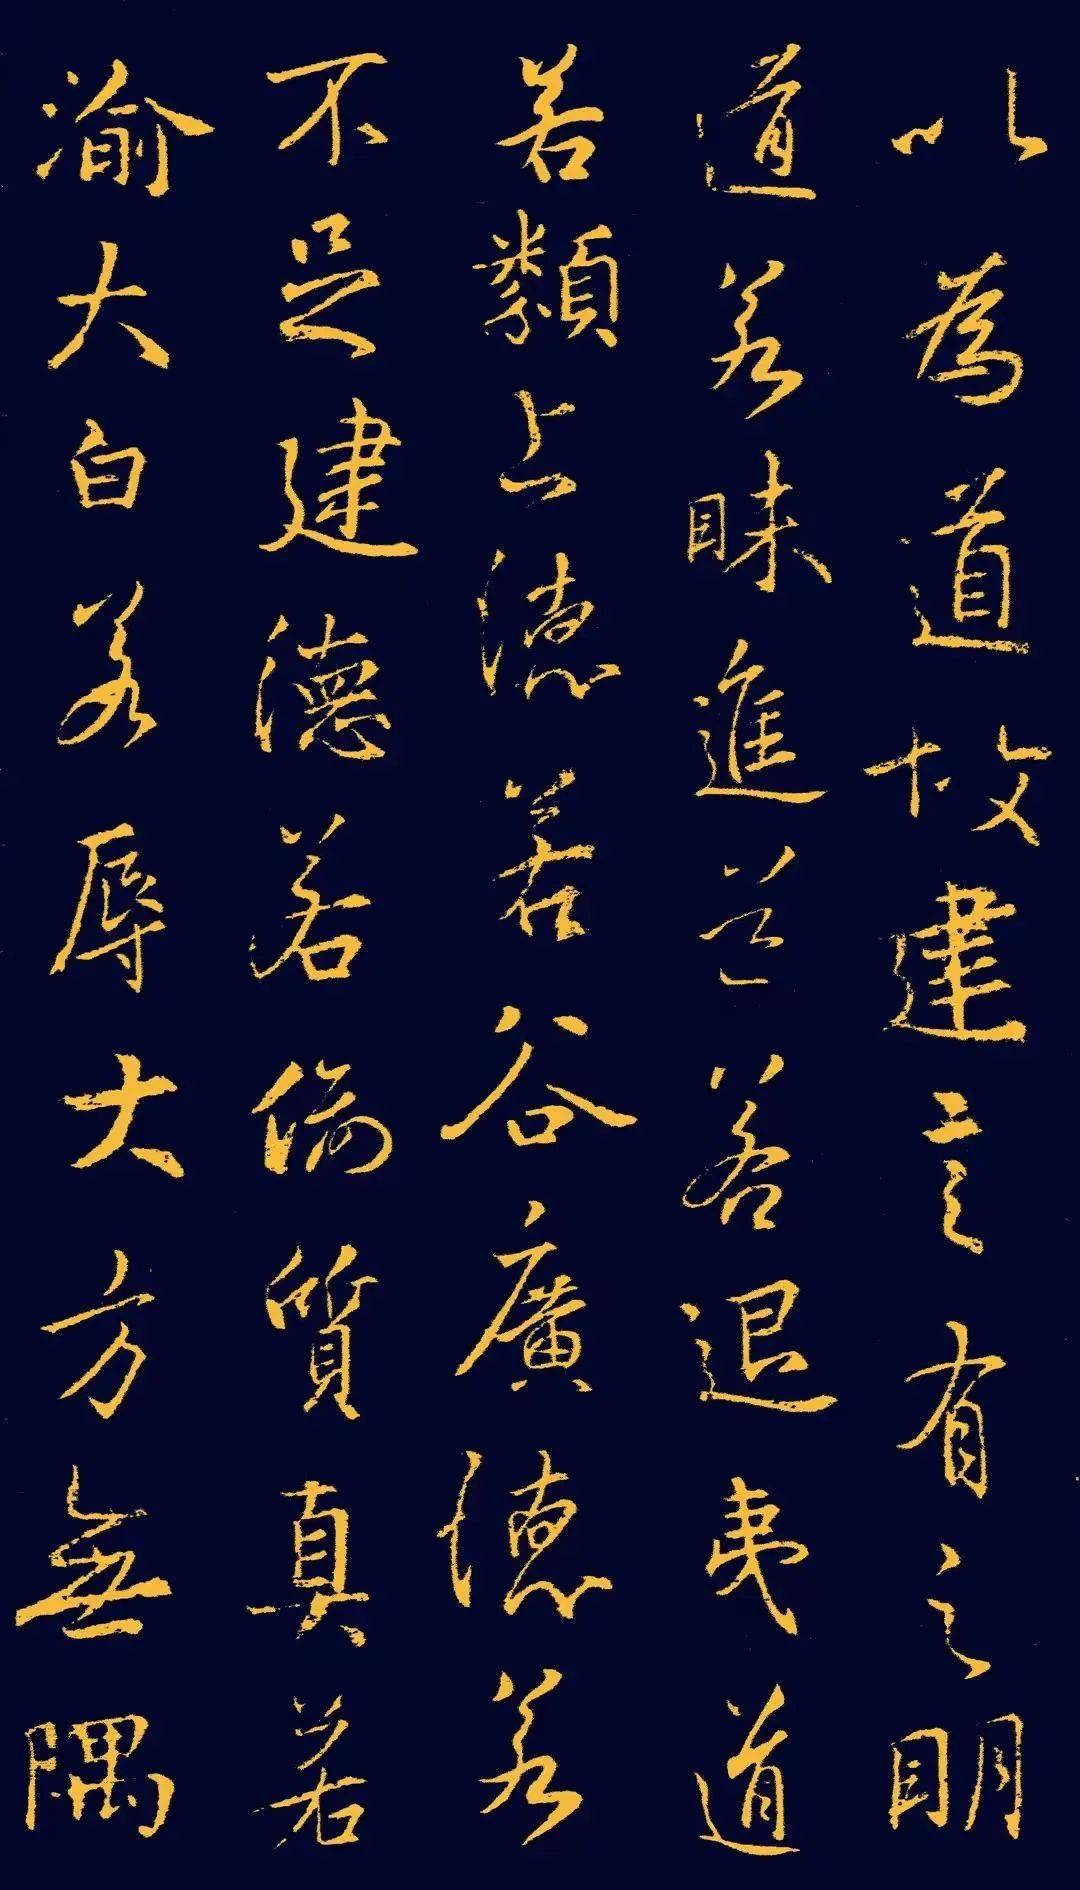 以為道故建言有之明
道若昧進道若退夷道
若纇上德若谷廣德若
不足建德若偷質真若
渝大白若辱大方無隅